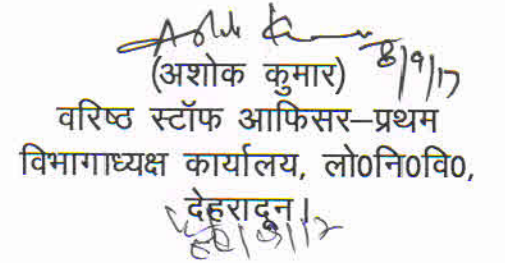 Ashok Kumar 8/9/17
(अशोक कुमार)
वरिष्ठ स्टॉफ आफिसर–प्रथम
विभागाध्यक्ष कार्यालय, लो0नि0वि0,
देहरादून।